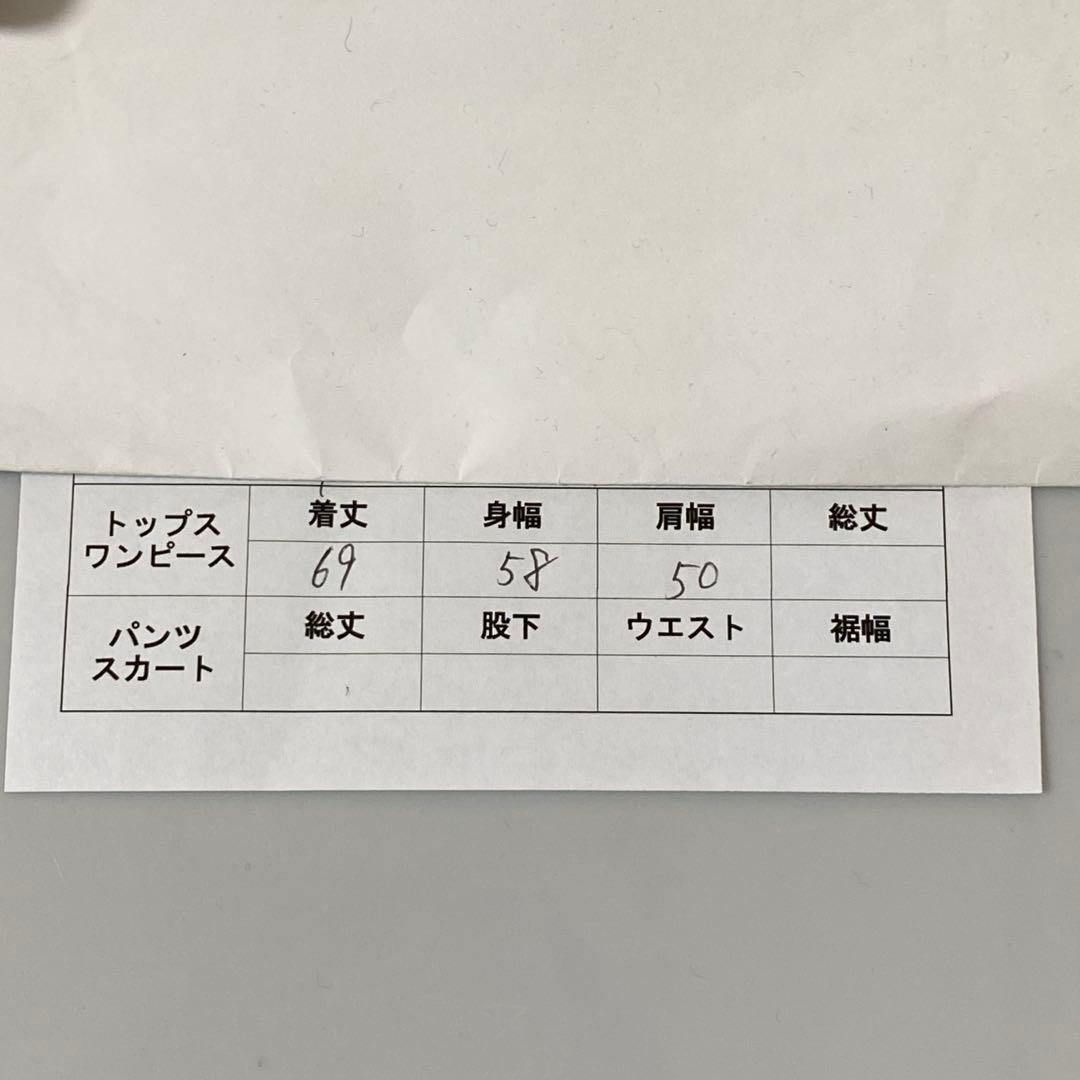 トップス
ワンピース
着丈 身幅 肩幅 総丈
69 58 50
パンツ
スカート
総丈 股下 ウエスト 裾幅